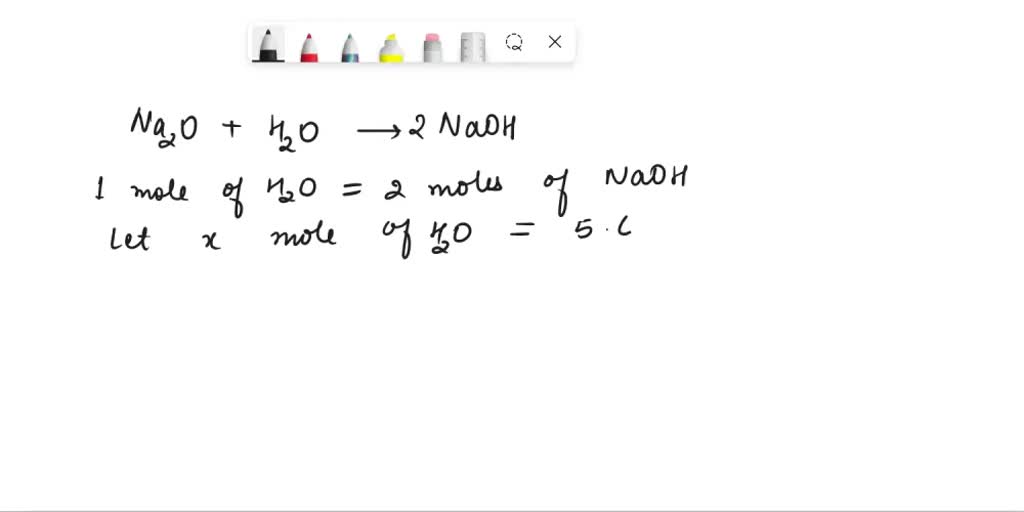 Na₂O + H₂O → 2 NaOH
1 mole of H₂O = 2 moles of NaOH
Let x mole of H₂O = 5.